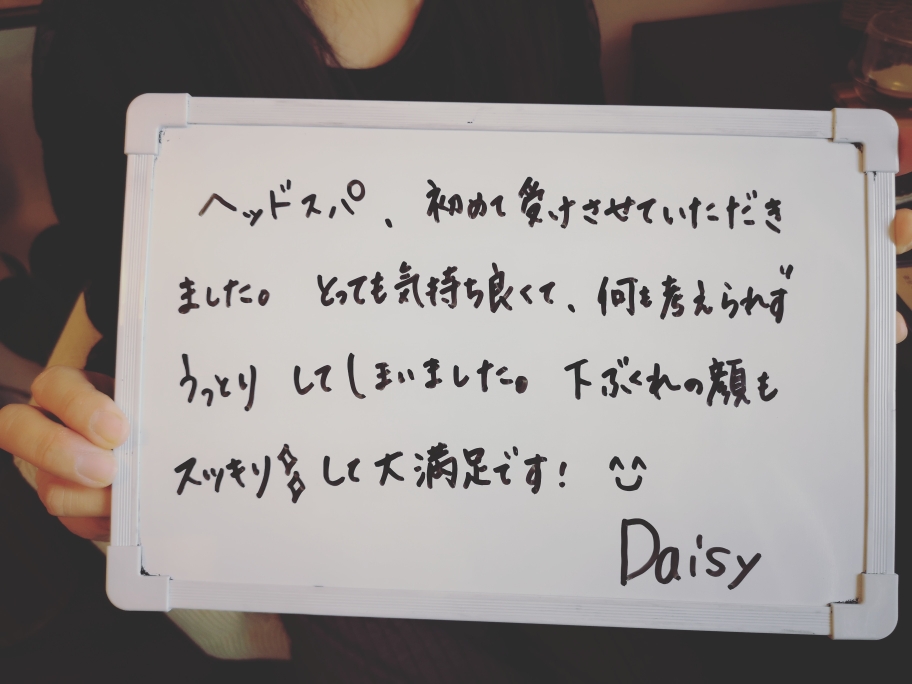 ヘッドスパ、初めて受けさせていただき
ました。とっても気持ち良くて、何も考えられず
うっとりしてしまいました。下ぶくれの顔も
スッキリして大満足です!
Daisy